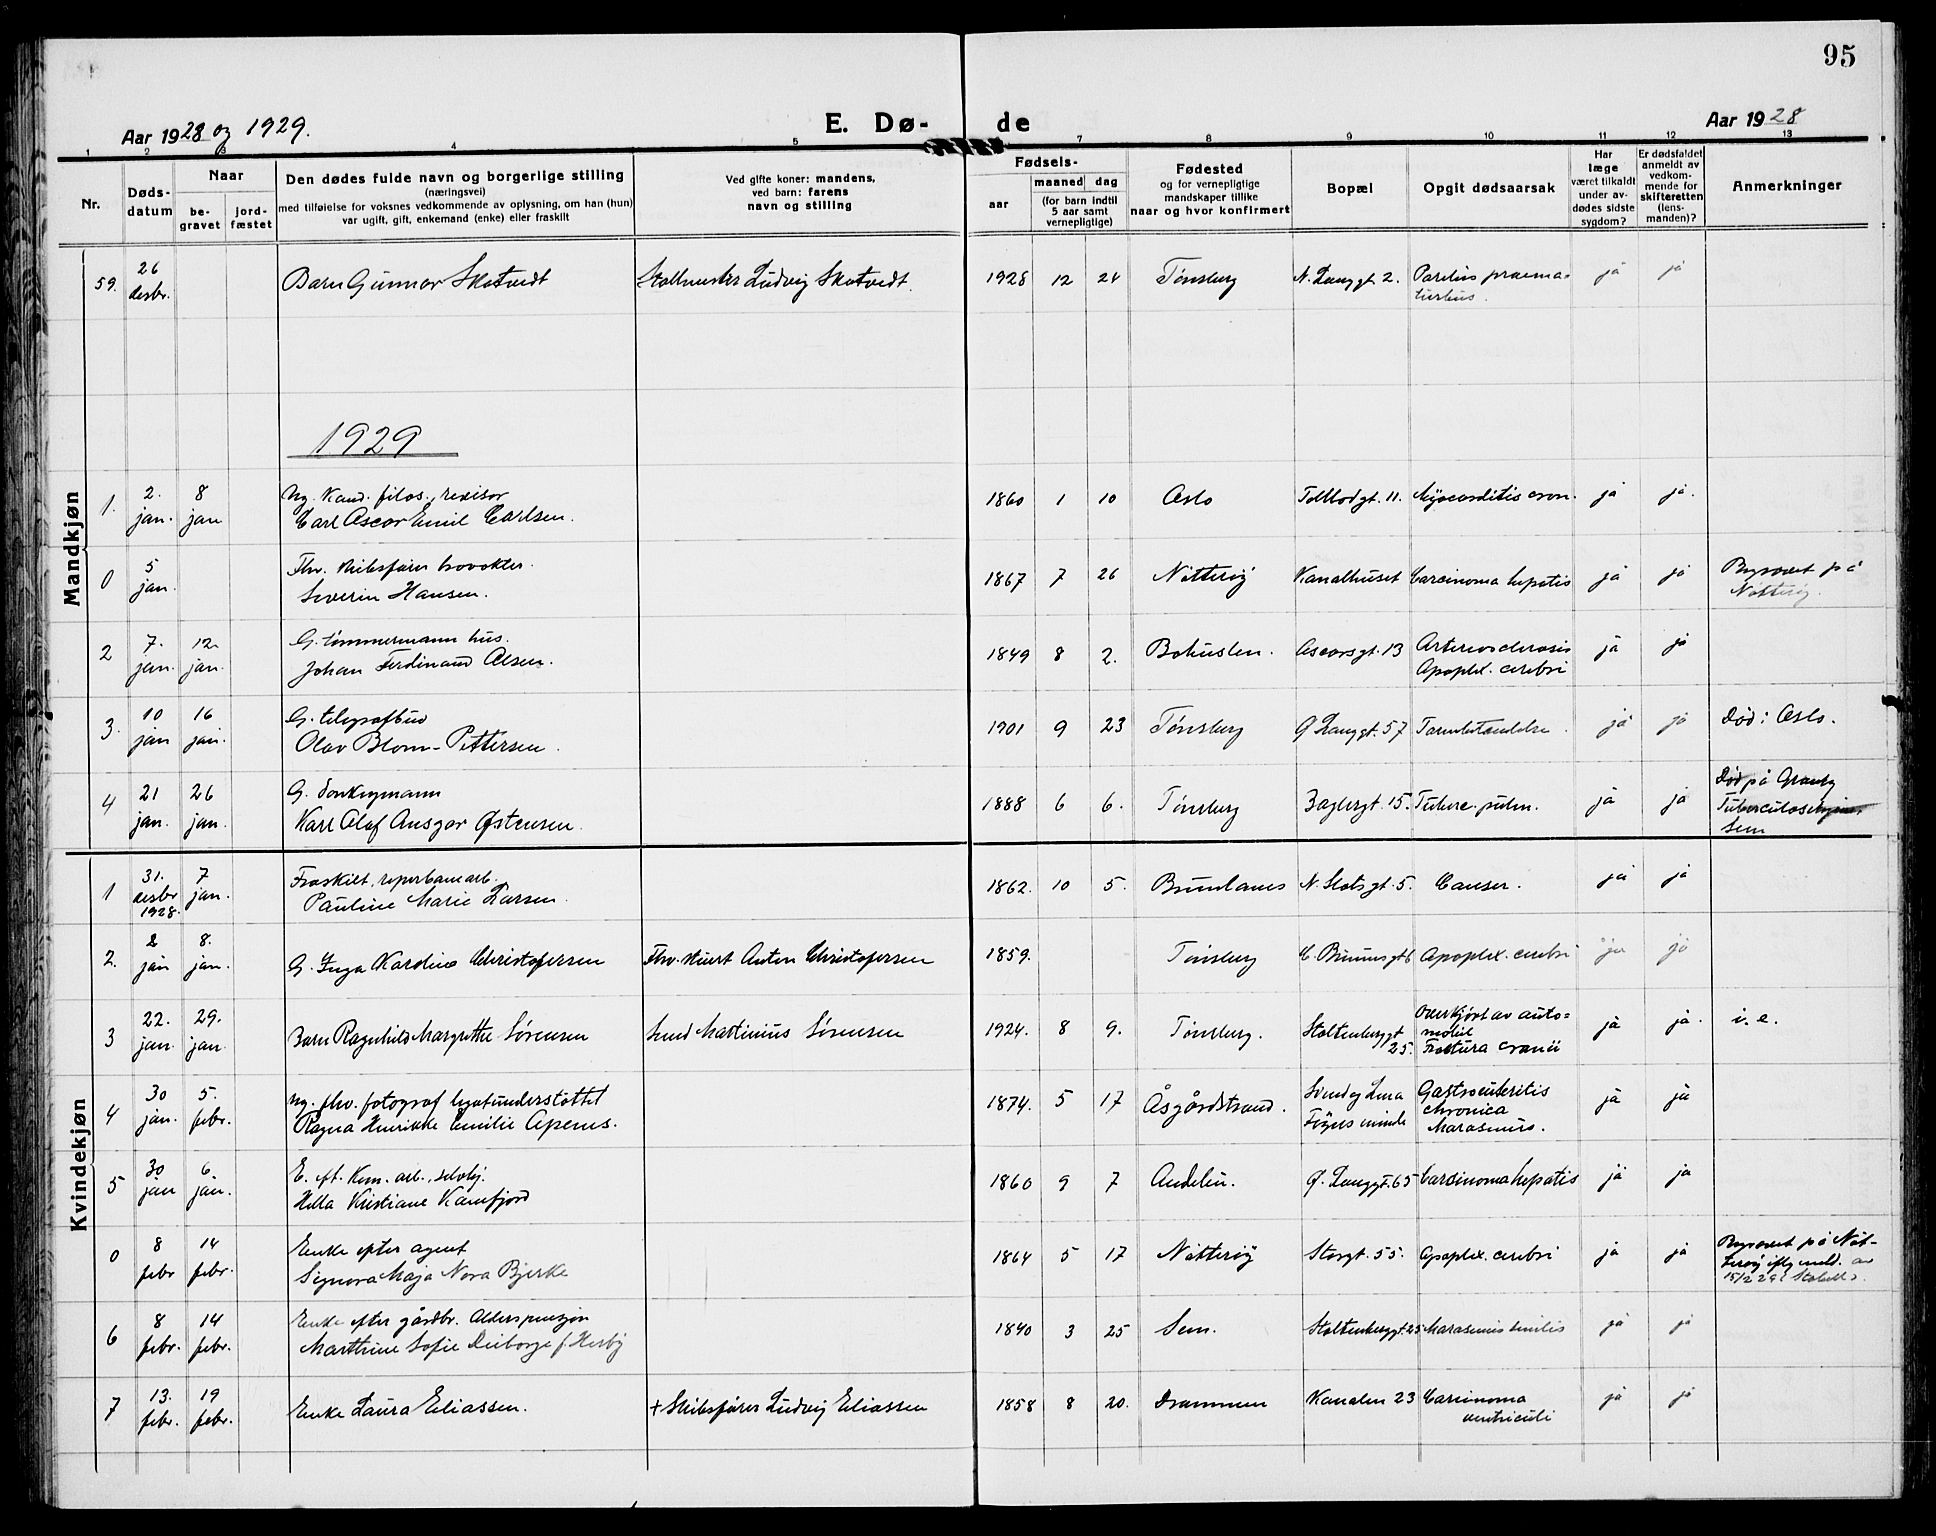 95
Aar 1928 og 1929.
E. Dø-
de
Aar 1928
1 2 3 4 5 7 8 9 10 11 12 13
Nr.
Døds-
datum
Naar
be-
gravet
jord-
fæstet
Den dødes fulde navn og borgerlige stilling
(næringsvei)
med tilføielse for voksnes vedkommende av oplysning, om han (hun)
var ugift, gift, enkemand (enke) eller fraskilt
Ved gifte koner: mandens,
ved barn: farens
navn og stilling
Fødsels-
aar
maaned dag
(for barn indtil
5 aar samt
vernepligtige)
Fødested
og for vernepligtige
mandskaper tillike
naar og hvor konfirmert
Bopæl
Opgit dødsaarsak
Har
læge
været tilkaldt
under av-
dødes sidste
sygdom?
Er dødsfaldet
anmeldt av
vedkom-
mende for
skifteretten
(lens-
manden)?
Anmerkninger
Mandkjøn
59. 26 desbr. Barn Gunnar Skotvedt Ludvig Skotvedt. 1928 12 24 Tønsberg N. Langgt. 2. Partus praema-
turus. ja ja
1929
1. 2. jan. 8 jan Ug. Kand. filos., revisor
Carl Oscar Emil Carlsen. 1860 1 10 Oslo Tollbodgt. 11. Myocarditis cron. ja ja.
0 5 jan. Fhv. skibsfører
Severin Hansen. 1867 7 26 Nøtterøy Kanalhuset Carcinoma hepatis ja ja Begravet på
Nøtterøy.
2 7. jan. 12. jan. G. tømmermann hus.
Johan Ferdinand Olsen. 1849 8 2. Bohuslen. Oscarsgt. 13 Arteriosclerosis
Apoplex. cerebri ja ja
3. 10 jan 16 jan. G. telegrafbud
Olav Blom-Pettersen. 1901 9 23 Tønsberg Ø Langgt. 57 ja ja Død i Oslo.
4 21 jan. 26 jan. G. donkeymann
Karl Olaf Ansgar Østensen. 1888 6 6. Tønsberg 15. Tuberc. pulm. ja ja Død på Granly
Sem
Kvindekjøn
1 31. desbr 1928. 7 jan. Fraskilt, reperbanearb.
Pauline Marie Larsen. 1862. 10 5. Brunlanes N. Slotsgt. 5. Cancer. ja ja
2. 2 jan 8. jan. G. Inga Kardine Christofersen Fhv. Anton Christofersen 1859. Tønsberg C. Bruunsgt 6 Apoplex. cerebri ja ja
3 22. jan. 29. jan. Barn Ragnhild Margrethe Sørensen Smed Martinius Sørensen 1924. 8 9. Tønsberg. Stoltenberggt
25. Overkjørt av auto-
mobil
Fractura cranii ja ja. i. e.
4 30 jan. 5. febr. Ug. fhv. fotograf legatunderstøttet
Ragna Henrikke Emilie Apenes. 1874. 5 17 Åsgårdstrand. Svend og Lina
Føyns minde Gastroenteritis
chronica
Marasmus. ja ja
5 30 jan 6. jan. E. eft. Kom. arb., selvhj.
Hella Kristiane Kamfjord 1860 9 7 Andebu. Ø. Langgt. 65 Carcinoma hepatis ja ja
0 8 febr 14 febr. Enke efter agent
Signora Maja Nora Bjerke 1864 5 17 Nøtterøy Storgt. 55. Apoplex. cerebri ja ja Begravet på Nøt-
terøy iflg meld. av
15/2 29
6 8 febr. 14 febr. Enke efter gårdbr. Alderspensjon
Marthine Sofie 1840 3 25 Sem. Stoltenberggt. 25 Marasmus senilis ja ja
7 13. febr. 19 febr. Enke Laura Eliassen. + Skibsfører Ludvig Eliassen 1858 8 20. Drammen Kanalen 23 Carcinoma
ventriculi ja ja